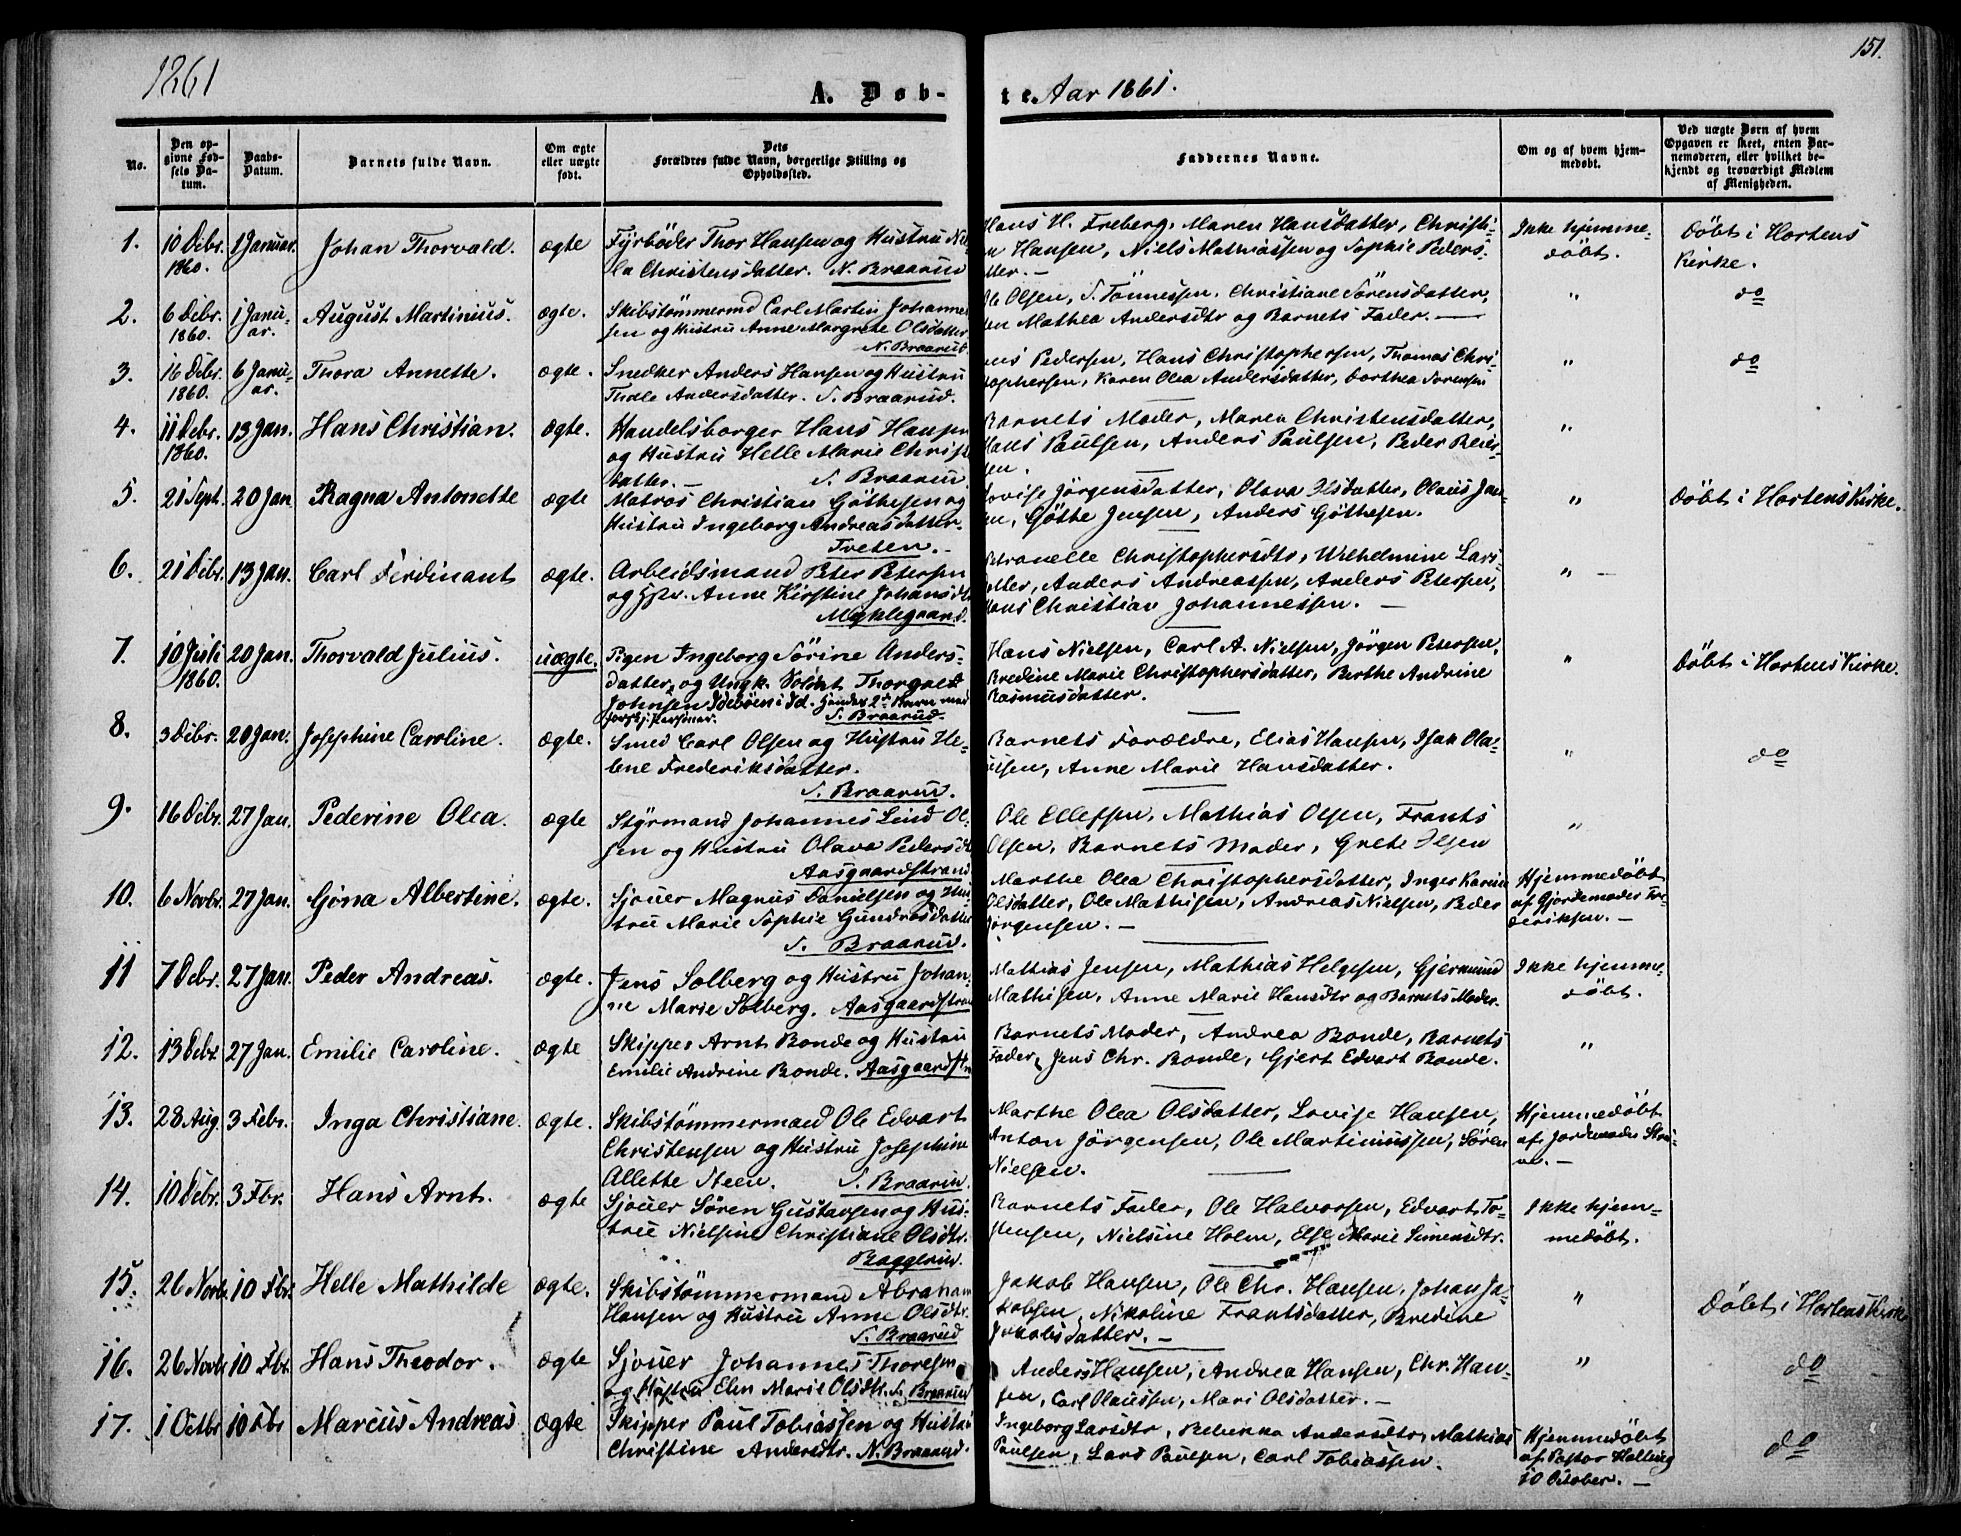 1861
151.
A. Døb-
te. Aar 1861.
No.
Den op-
givne Fød-
sels Da-
tum.
Daabs-
Datum.
Barnets fulde Navn.
Om ægte
eller uægte
født.
Dets
Forældres fulde Navn, borgerlige Stilling og
Opholdssted.
Faddernes Navne.
Om og af hvem hjem-
medøbt.
Ved uægte Børn af hvem
Opgaven er skeet, enten Bar-
nemoderen, eller hvilket be-
kjendt og troværdigt Medlem
af Menigheden.
1. 10 Debr. 1860. 1 Januar. Johan Thorvald. ægte
Fyrböder Thor Hansen og Hustru
la Christensdatter. N. Braarud
Hans H. Freberg, Maren Hansdatter, Christi-
n Hansen, Niels Mathiassen og Sophie Peders-
tter. —
Ikke hjemme-
döbt.
Döbt i Hortens
Kirke.
2. 6 Debr. 1860. 1 Janu-
ar. August Martinius. ægte.
Skibstömmermd Carl Martin Johannes
sen og Hustru Anne Margrete Olsdatter
N. Braarud.
Ole Olsen, S. Tönnessen, Christiane Sörensdatter,
en Mathea Andersdtr og Barnets Fader. —
" do
3. 16 Debr. 1860. 6 Janu-
ar. Thora Annette. ægte.
Snedker Anders Hansen og Hustru
Thale Andersdatter. S. Braarud.
Pedersen, Hans Christophersen, Thomas Chri-
stophersen, Karen Olea Andersdatter, Dorthea Sorensen
" do
4. 11 Debr. 1860. 13 Jan. Hans Christian. ægte.
Handelsborger Hans Hansen
og Hustru Helle Marie Christ
datter. — S. Braarud
Barnets Moder, Maren Christensdatter,
Hans Paulsen, Anders Paulsen, Peder
sen.
"
5. 21 Sept. 20 Jan Ragna Antonette ægte
Matros Christian Göthesen og
Hustru Ingeborg Andreasdatter.
Tveten. —
Lovise Jörgensdatter, Olava Olsdatter, Olaus Jan-
en, Göthe Jensen, Anders Göthesen.
" Döbt i Hortens Kirke.
6. 21 Debr. 13 Jan. Carl Ferdinant ægte.
Arbeidsmand Peter Petersen
og Hstr. Anne Kirstine Johansdt
Myklegaard.
Petronelle Christophersdtr, Wilhelmine Lars-
datter, Anders Andreassen, Anders Petersen,
Hans Christian Johannessen. —
" —
7. 10 Juli 1860. 20 Jan. Thorvald Julius. uægte.
Pigen Ingeborg Sörine Anders-
datter og Ungk. Soldat Thorvald
Johnsen i Id. Hendes 2det Barn med
forskj. Personer. S. Braarud.
Hans Nielsen, Carl A. Nielsen, Jörgen Petersen,
Bredine Marie Christophersdatter, Berthe Andrine
Rasmusdatter.
" Döbt i Hortens Kirke.
8. 3 Debr. 20 Jan. Josephine Caroline. ægte.
Smed Carl Olsen og Hustru He-
lene Frederiksdatter.
S. Braarud.
Barnets Forældre, Elias Hansen, Isak Ola-
usen, Anne Marie Hansdatter.
" do
9. 16 Debr. 27 Jan. Pederine Olea. ægte
Styrmand Johannes Lind Ol-
sen og Hustru Olava Pedersdt
Aasgaardstrand
Ole Ellefsen, Mathias Olsen, Frants
Olsen, Barnets Moder, Grete Olsen
"
10. 6 Novbr. 27 Jan. Gjöna Albertine. ægte.
Sjouer Magnus Danielsen og Hu-
stru Marie Sophie Gundersdatter
S. Braarud.
Marthe Olea Christophersdatter, Inger Karine
Olsdatter, Ole Mathisen, Andreas Nielsen, Peder
Jörgensen. —
Hjemmedöbt
af Gjordemoder Fre-
deriksen. —
11 7 Debr. 27 Jan. Peder Andreas. ægte.
Jens Solberg og Hustru Johan-
ne Marie Solberg. Aasgaardstran
Mathias Jensen, Mathias Helgesen, Gjermund
Mathisen, Anne Marie Hansdtr og Barnets Moder.
Ikke hjemme-
döbt.
12. 13 Debr. 27 Jan. Emilie Caroline. ægte
Skipper Arnt Bonde og Hustru
Emilie Andrine Bonde. Aasgaardstr
Barnets Moder, Andrea Bonde, Barnets
Fader, Jens Chr. Bonde, Gjert Edvart Bonde.
"
13. 28 Aug. 3 Febr. Inga Christiane. ægte.
Skibstömmermand Ole Edvart
Christensen og Hustru Josephine
Allette Steen. S. Braarud.
Marthe Olea Olsdatter, Lovise Hansen,
Anton Jörgensen, Ole Martiniussen, Sören
Nielsen.
Hjemmedöbt
af Jordemoder
14. 10 Debr. 3 Fbr. Hans Arnt. ægte
Sjouer Sören Gustavsen og Hus-
tru Nielsine Christiane Olsdtr.
Baggerud.
Barnets Fader, Ole Halvorsen, Edvart To-
Nielsine Holm, Else Marie Simensdtr.
Ikke hjem-
medöbt.
15. 26 Novbr. 10 Fbr. Helle Mathilde ægte.
Skibstömmermand Abraham
Hansen og Hustru Anne Olsdtr.
S. Braarud
Jakob Hansen, Ole Chr. Hansen, Johan Ja-
kobsen, Nikoline Frantsdatter, Bredine
Jakobsdatter. —
" Döbt i Hortens Kirke
16. 26 Novbr 10 Fbr. Hans Theodor. ægte
Sjouer Johannes Thoresen
og Hustru Elen Marie Olsdtr. S. Braarud
Anders Hansen, Andrea Hansen, Chr. Han-
sen, Carl Olaussen, Mari Olsdatter. —
" do
17. 1 Octbr 10 Fbr Marcus Andreas ægte
Skipper Paul Tobiassen og Hustru
Christine Andersdtr. N. Braarud.
Ingeborg Larsdtr, Rebekka Andersdtr, Mathias
Paulsen, Lars Paulsen, Carl Tobiassen.
Hjemmedöbt
af Pastor
10 October. —
do